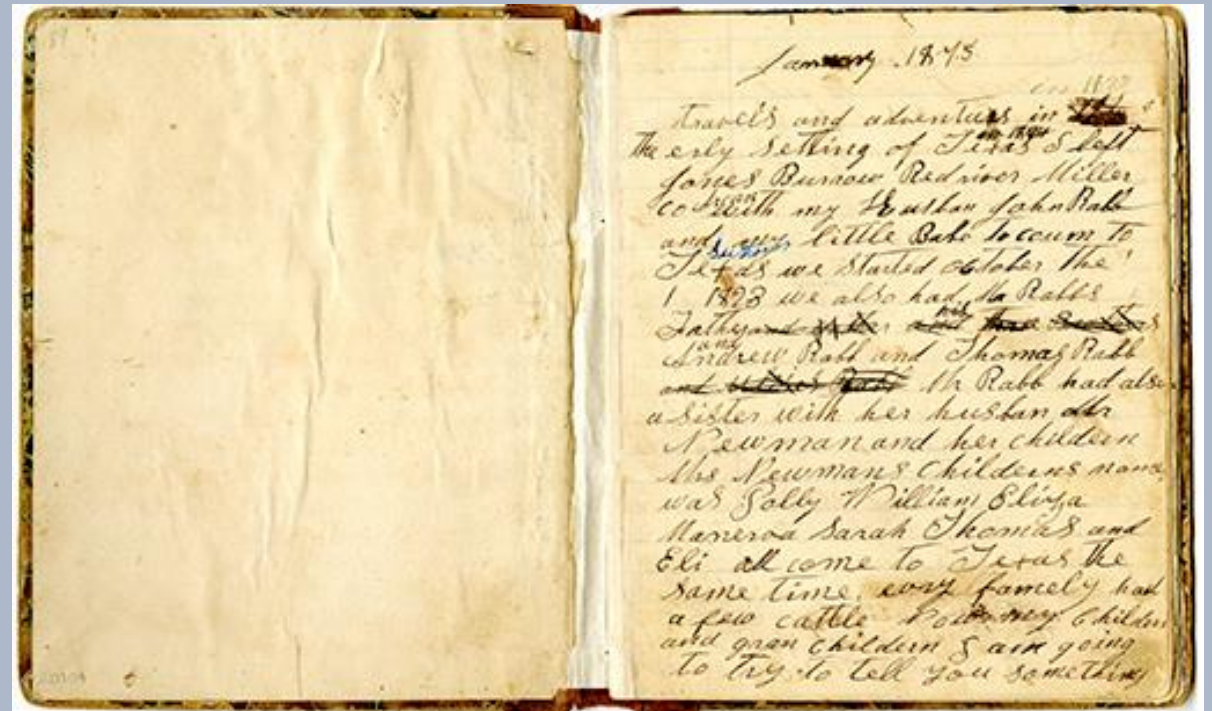 January . 1875
in 1822
travels and adventurs in
the erly Setting of Texas I left
Jones Burrow Redriver Miller
co with my Husban John Rabb
and my little Babe to coum to
Texas we started october the
1 1823 we also had Mr Rabbs
Father his
and
Andrew Rabb and Thomas Rabb
Mr Rabb had also
a sister with her husban Mr
Newman and her childern
Mrs Newmans Childerns name
was Polly William Eliza
Manerva Sarah Thomas and
Eli all come to Texas the
same time. evry famely had
a few cattle Now my Childern
and gran childern I am going
to try to tell you something